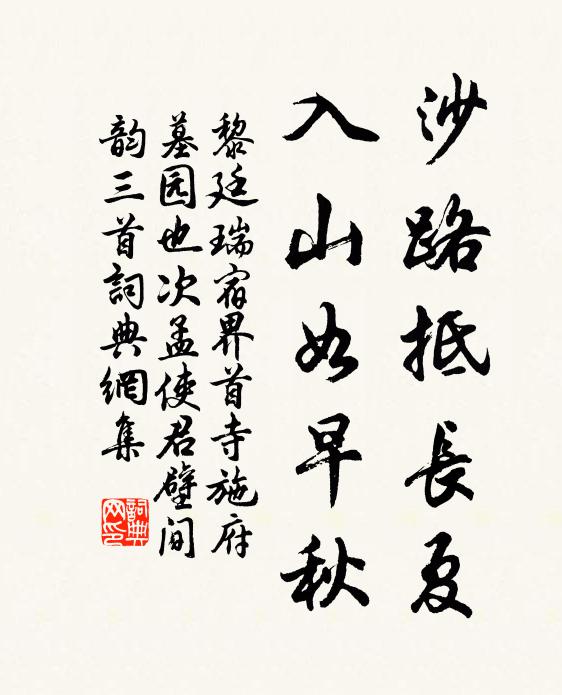 沙路抵長夏
入山如早秋
黎廷瑞宿界首寺施府
墓园也次孟使君壁间
韵三首詞典網集
詞典
网印